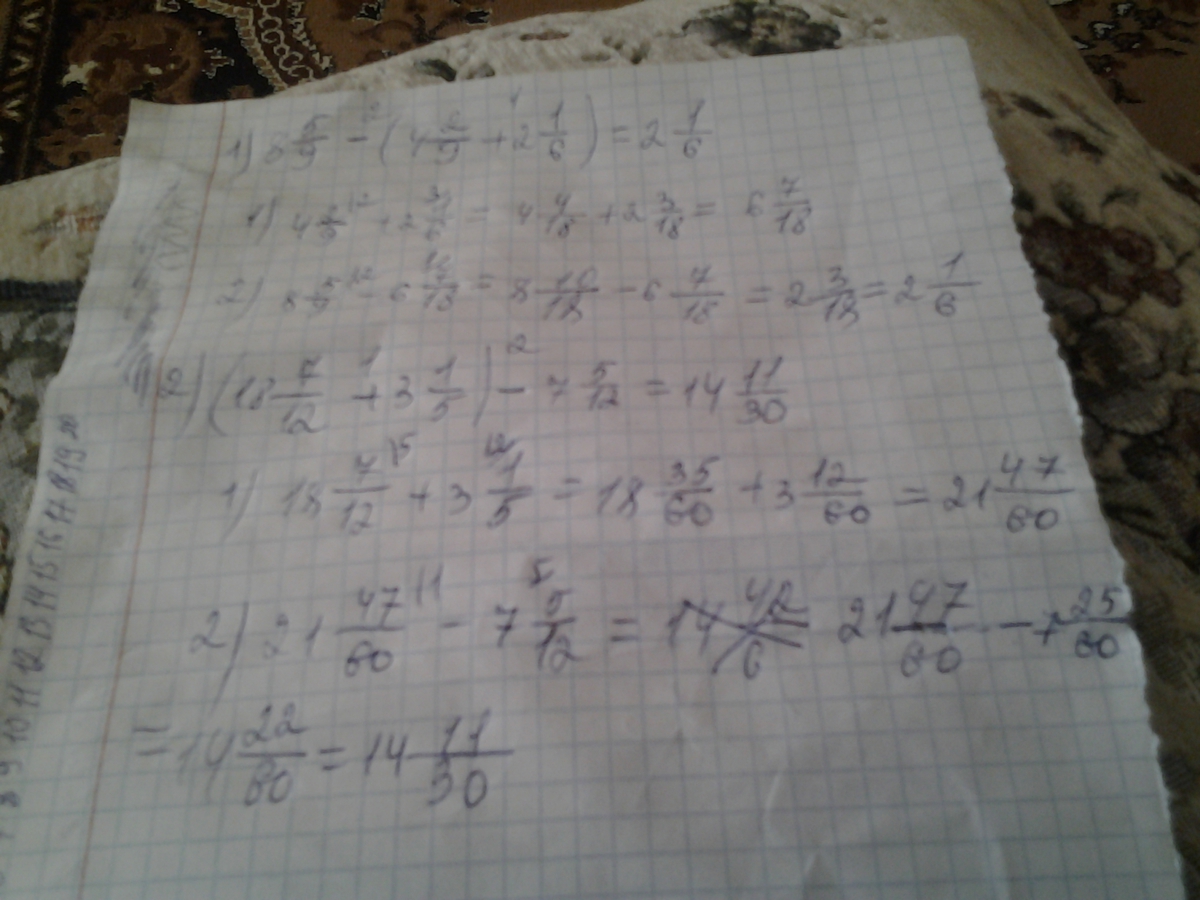 1) 8 5/9 - (4 2/9 + 2 1/6) = 2 1/6
1) 4 2/9 + 2 = 4 4/18 + 2 3/18 = 6 7/18
2) 8 5/9 - 6 /18 = 8 10/18 - 6 7/18 = 2 3/18 = 2 1/6
2) (18 7/12 + 3 1/5) - 7 5/12 = 14 11/30
1) 18 7/12 + 3 1/5 = 18 35/60 + 3 12/60 = 21 47/60
2) 21 47/60 - 7 5/12 = 21 47/60 - 7 25/60
= 14 22/60 = 14 11/30
8 9 10 11 12 13 14 15 16 17 18 19 20